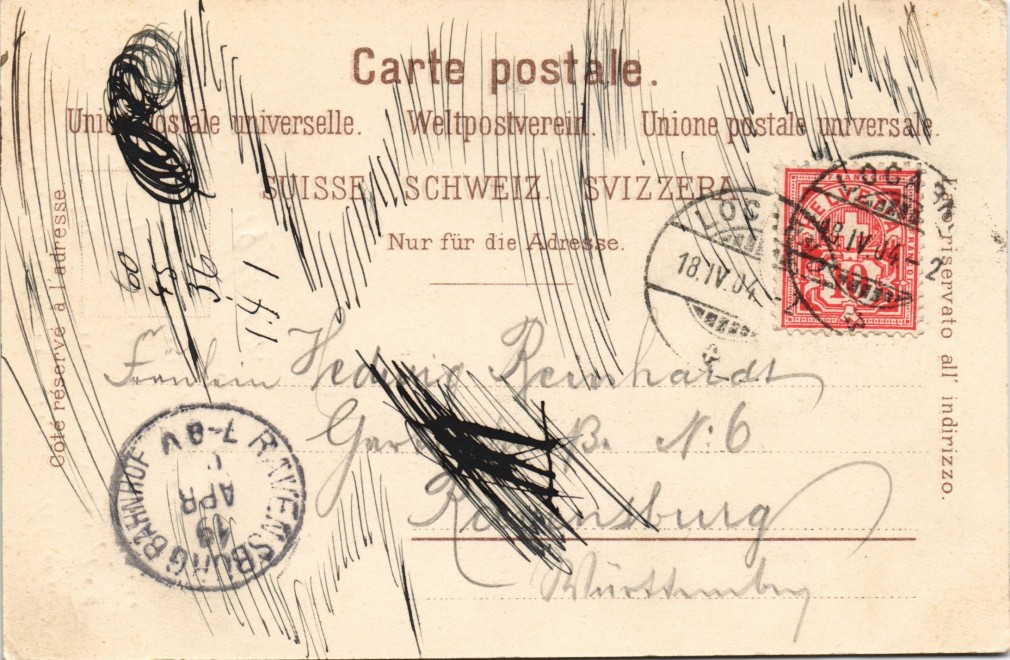 Carte postale.
Union postale universelle. Weltpostverein. Unione postale universale.
SUISSE. SCHWEIZ. SVIZZERA.
Nur für die Adresse.
Côté réservé à l'adresse.
riservato all' indirizzo.
60
45
36
1.41
LOC
18.IV.04
LOCA
18.IV.04-2
HELVETIA
FRANCO
10
Fräulein Hedwig Reinhardt
N: 6
Ravensburg
Württemberg
RAVENSBURG BAHNHOF
19
APR
7-8 V